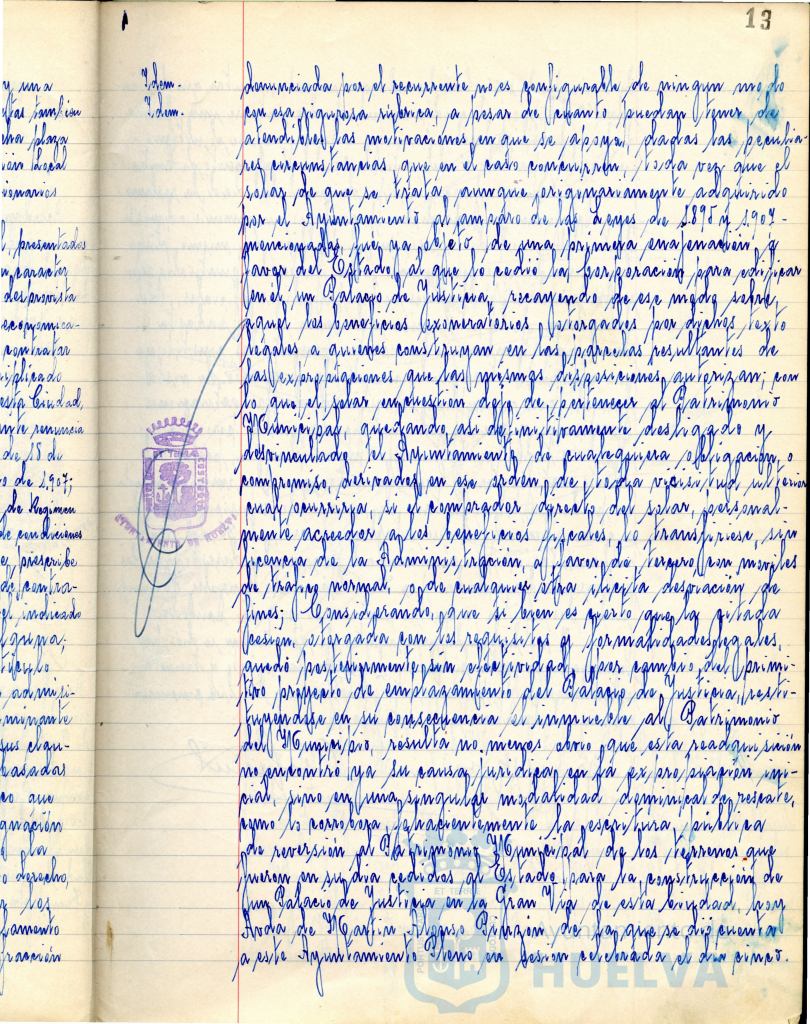 13
y una
tas tambien
cha plaza
ion Local
ionarios
l, presentados
n caracter
desprovista
economica-
contratar
iplicado
esta Ciudad,
nte renuncia
de 18 de
o de 1.907;
de Regimen
de condiciones
e prescribe
de contra-
el indicado
lguna;
ticulo
admisi-
minante
sus clau-
basadas
co que
gnación
la
o derecho,
los
lamento
gración
Idem.
Idem.
denunciada por el recurrente no es configurable de ningun modo
con esa rigurosa rúbrica, a pesar de cuanto puedan tener de
atendibles las motivaciones en que se apoya, dadas las peculia-
res circunstancias, que en el caso concurren, toda vez que el
solar de que se trata, aunque originariamente adquirido
por el Ayuntamiento al amparo de las Leyes de 1.895 y 1.907-
mencionadas, fué ya objeto de una primera enajenación, a
favor del Estado, al que lo cedió la Corporación para edificar
en él un Palacio de Justicia, recayendo de ese modo sobre
aquel los beneficios exoneratorios otorgados por dichos texto
legales a quienes construyan en las parcelas resultantes de
las expropiaciones que las mismas disposiciones autorizan; con
lo que el solar en cuestión dejó de pertenecer al Patrimonio
Municipal, quedando asi definitivamente desligado y
desvinculado el Ayuntamiento de cualesquiera obligación o
compromiso, derivados en ese orden, de toda vicisitud ulterior
cual ocurriria, si el comprador directo del solar, personal-
mente acreedor a los beneficios fiscales, lo transfiriese, sin
licencia de la Administración, a favor de tercero con moviles
de tráfico normal, o de cualquier otra ilicita desviación de
fines; Considerando, que si bien es cierto que la citada
cesion, otorgada con los requisitos y formalidades legales,
quedó posteriormente sin efectividad, por cambio del primi-
tivo proyecto de emplazamiento del Palacio de Justicia, resti-
tuyendose en su consecuencia el inmueble al Patrimonio
del Municipio, resulta no menos obvio que esta readquisición
no encontró ya su causa juridica en la expropiación ini-
cial, sino en una singular modalidad dominical de rescate,
como lo corrobora fehacientemente la escritura pública
de reversión al Patrimonio Municipal de los terrenos que
fueron en su dia cedidos al Estado para la construcción de
un Palacio de Justicia en la Gran Via de esta ciudad, hoy
Avda de Martin Alonso Pinzón, de la que se dió cuenta
a este Ayuntamiento Pleno en sesión celebrada el dia cinco.
AYUNTAMIENTO DE HUELVA
HUELVA